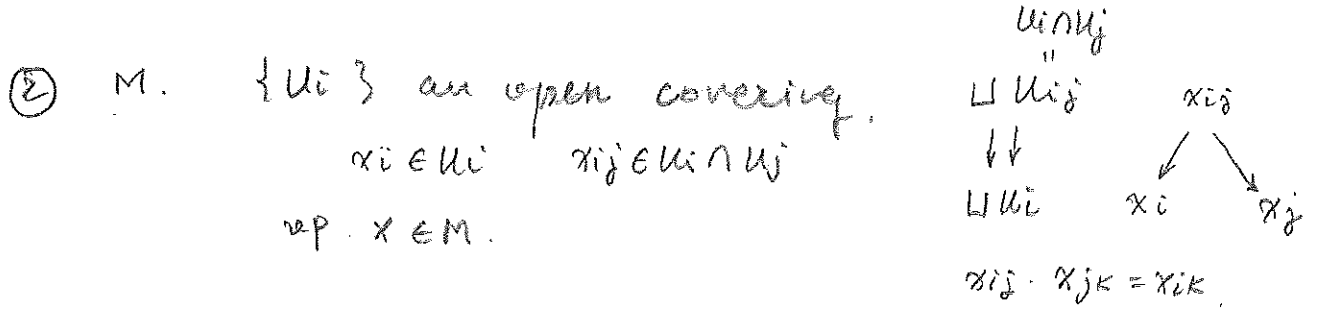 ② M. {Ui} an open covering.
xi ∈ Ui xij ∈ Ui ∩ Uj
rep. x ∈ M.
Ui ∩ Uj
"
⊔ Uij xij
↓↓ ↙ ↘
⊔ Ui xi xj
xij · xjk = xik.